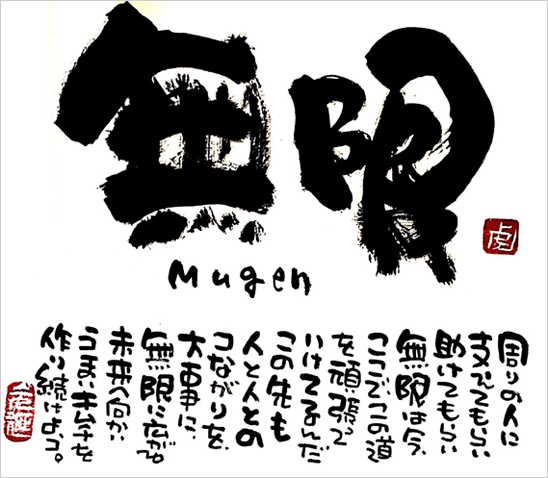 無限
Mugen
虎
周りの人に
支えてもらい
助けてもらい
無限は今、
ここで、この道
を頑張って
いけてるんだ
この先も
人と人との
つながりを、
大事に、
無限に広がる
未来へ向かい
うまいキムチを
作り続けよう。